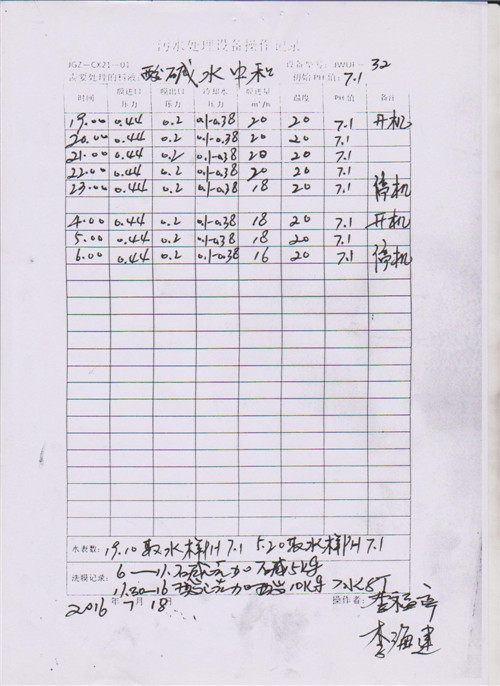 污水处理设备操作记录
JGZ-CXZ1-01 设备型号: JWUF- 32
需要处理的料液: 酸碱水中和 初始PH值: 7.1
时间 膜进口压力 膜出口压力 冷却水压力 膜透量m³/h 温度 PH值 备注
19.00 0.44 0.2 0.1-0.38 20 20 7.1 开机
20.00 0.44 0.2 0.1-0.38 20 20 7.1
21.00 0.44 0.2 0.1-0.38 20 20 7.1
22.00 0.44 0.2 0.1-0.38 20 20 7.1
23.00 0.44 0.2 0.1-0.38 18 20 7.1 停机
4.00 0.44 0.2 0.1-0.38 18 20 7.1 开机
5.00 0.44 0.2 0.1-0.38 18 20 7.1
6.00 0.44 0.2 0.1-0.38 16 20 7.1 停机
水表数: 19.10取水样PH7.1 5.20取水样PH7.1
洗膜记录: 6-11.
17.30-16 加 10kg
2016年7月18日 操作者: 李
李海建